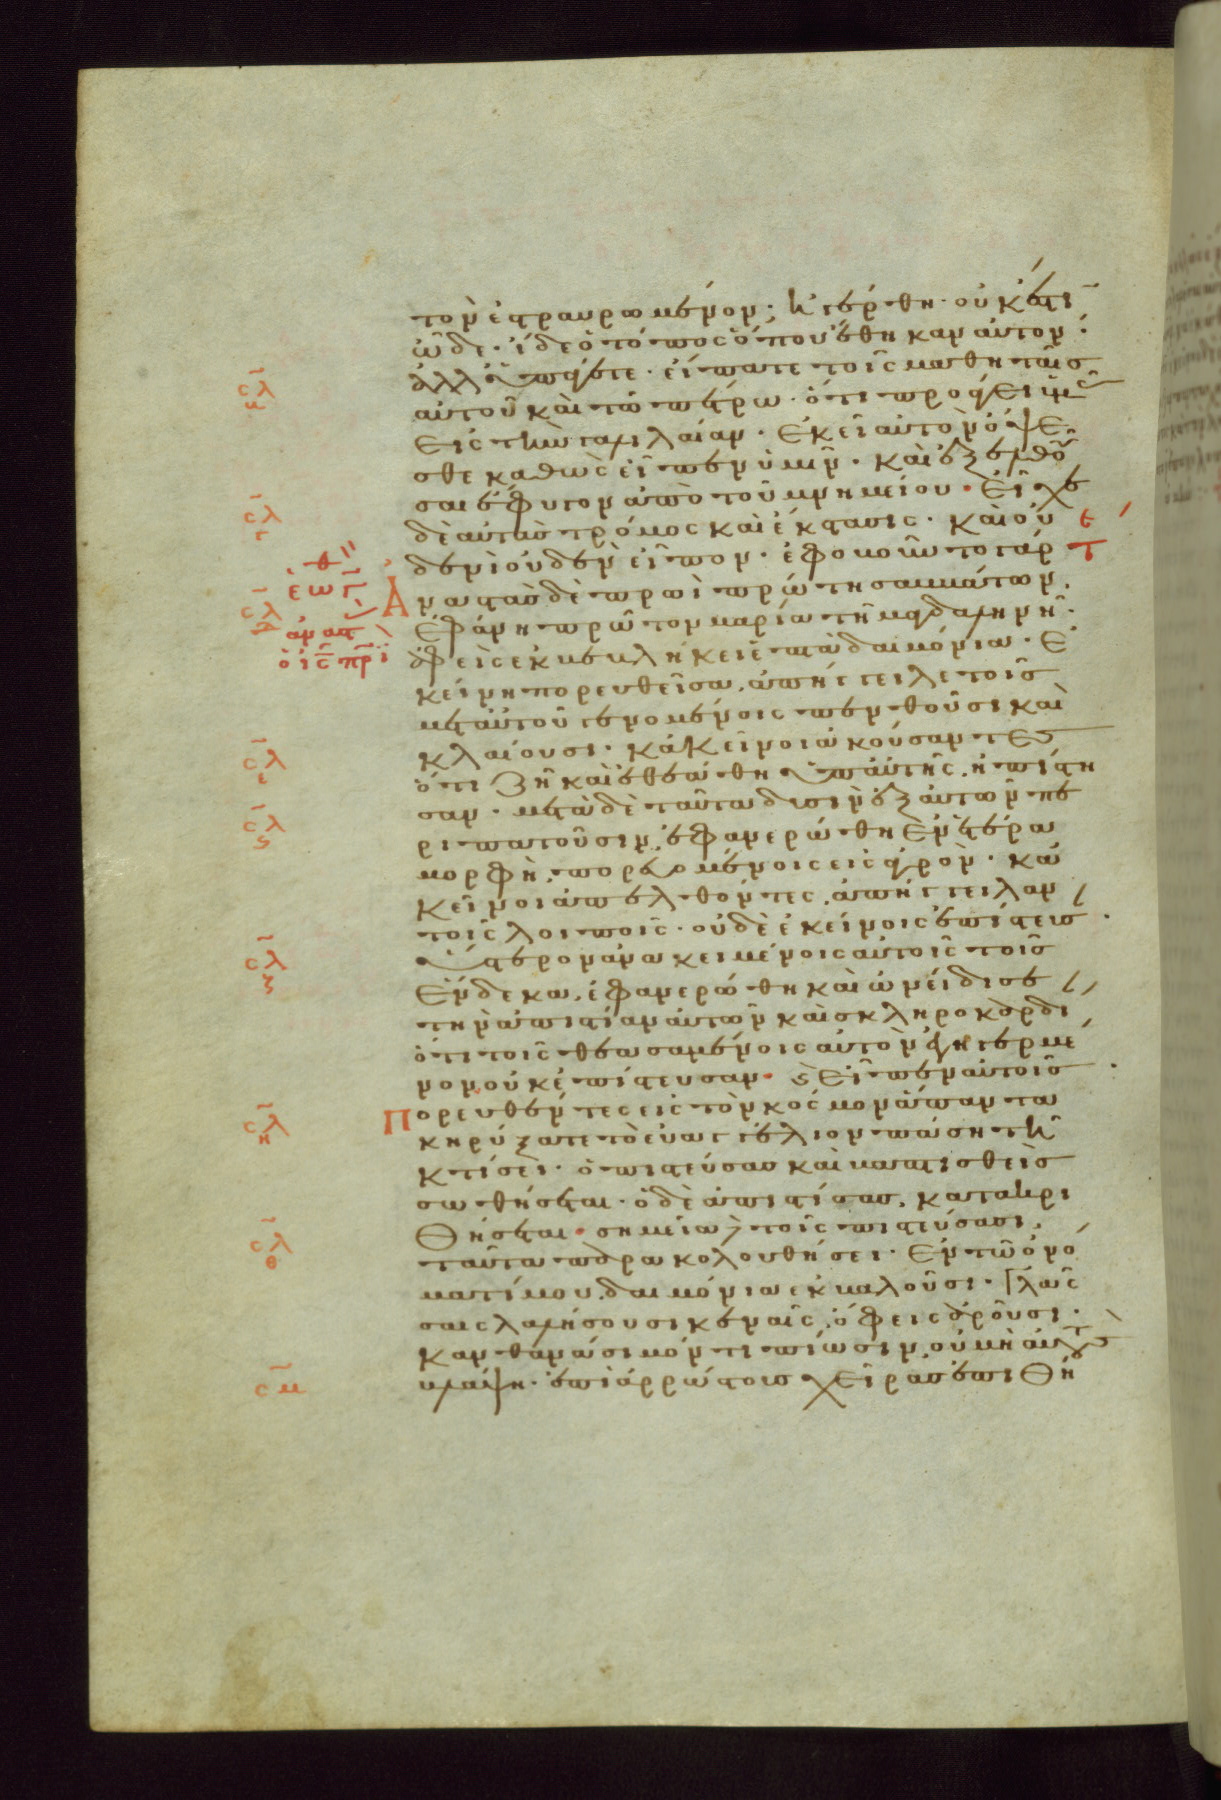 τον ἐσταυρωμένον· ἠγέρθη· οὐκ ἔστιν
ὧδε· ἴδε ὁ τόπος ὅπου ἔθηκαν αὐτόν·
ἀλλ' ὑπάγετε· εἴπατε τοῖς μαθηταῖς
σλγ
αὐτοῦ καὶ τῷ πέτρω· ὅτι προάγει ὑμᾶς
εἰς τὴν γαλιλαίαν· ἐκεῖ αὐτὸν ὄψε
σθε καθὼς εἶπεν ὑμῖν· καὶ ἐξελθοῦ
σαι ἔφυγον ἀπὸ τοῦ μνημείου· εἶχε
σλ
δὲ αὐτὰς τρόμος καὶ ἔκστασις· καὶ οὐ
δενὶ οὐδὲν εἶπον· ἐφοβοῦντο γάρ τ
ἑωγ
σλ
Ἀναστὰς δὲ πρωὶ πρώτη σαββάτων,
ἀναστ
ἐφάνη πρῶτον μαρία τῆ μαγδαληνῆ·
ὁ ις πρωῒ
ἀφ' ἧς ἐκβεβλήκει ἑπτὰ δαιμόνια· ἐ
κείνη πορευθεῖσα, ἀπήγγειλε τοῖς
μετ' αὐτοῦ γενομένοις πενθοῦσι καὶ
κλαίουσι· κἀκεῖνοι ἀκούσαντες
σλε
ὅτι ζῆ καὶ ἐθεάθη ὑπ' αὐτῆς, ἠπίστη
σαν· μετὰ δὲ ταῦτα δυσὶν ἐξ αὐτῶν πε
σλς
ριπατοῦσιν, ἐφανερώθη ἐν ἑτέρα
μορφῆ, πορευομένοις εἰς ἀγρόν· κἀ
κεῖνοι ἀπελθόντες, ἀπήγγειλαν
τοῖς λοιποῖς· οὐδὲ ἐκείνοις ἐπίστευσ
ὕστερον ἀνακειμένοις αὐτοῖς τοῖς
σλζ
ἕνδεκα, ἐφανερώθη καὶ ὠνείδισε
τὴν ἀπιστίαν αὐτῶν καὶ σκληροκαρδί
ὅτι τοῖς θεασαμένοις αὐτὸν ἐγηγερμέ
νον οὐκ ἐπίστευσαν· καὶ εἶπεν αὐτοῖς
σλη
Πορευθέντες εἰς τὸν κόσμον ἅπαντα
κηρύξατε τὸ εὐαγγέλιον πάση τῆ
κτίσει· ὁ πιστεύσας καὶ βαπτισθεὶς
σωθήσεται· ὁ δὲ ἀπιστήσας, κατακρι
σλθ
θήσεται· σημεῖα δὲ τοῖς πιστεύσασι,
ταῦτα παρακολουθήσει· ἐν τῷ ὀνό
ματί μου, δαιμόνια ἐκβαλοῦσι· γλώσ
σαις λαλήσουσι κεναῖς, ὄφεις ἀροῦσι·
κἂν θανάσιμόν τι πίωσιν, οὐ μὴ αὐτοὺς
σμ
βλάψη· ἐπὶ ἀρρώστοις χεῖρας ἐπιθή